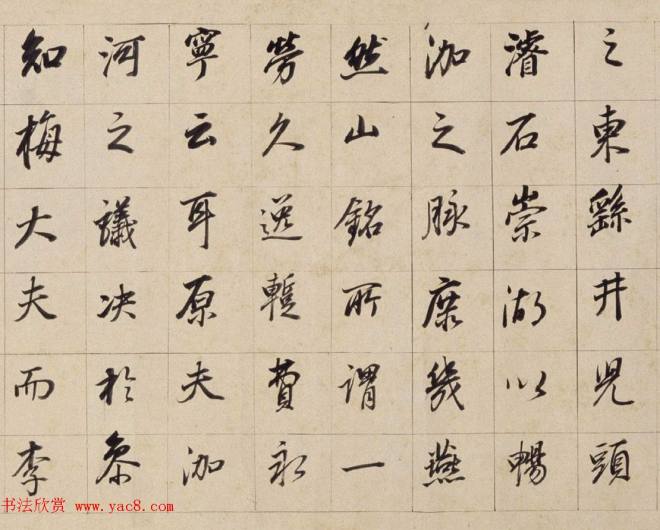 之東繇井兒頭
濬石崇湖以暢
泇之脉庶幾燕
然山銘所謂一
勞久逸暫費永
寧云耳原夫泇
河之議決於參
知梅大夫而李
书法欣赏 www.yac8.com